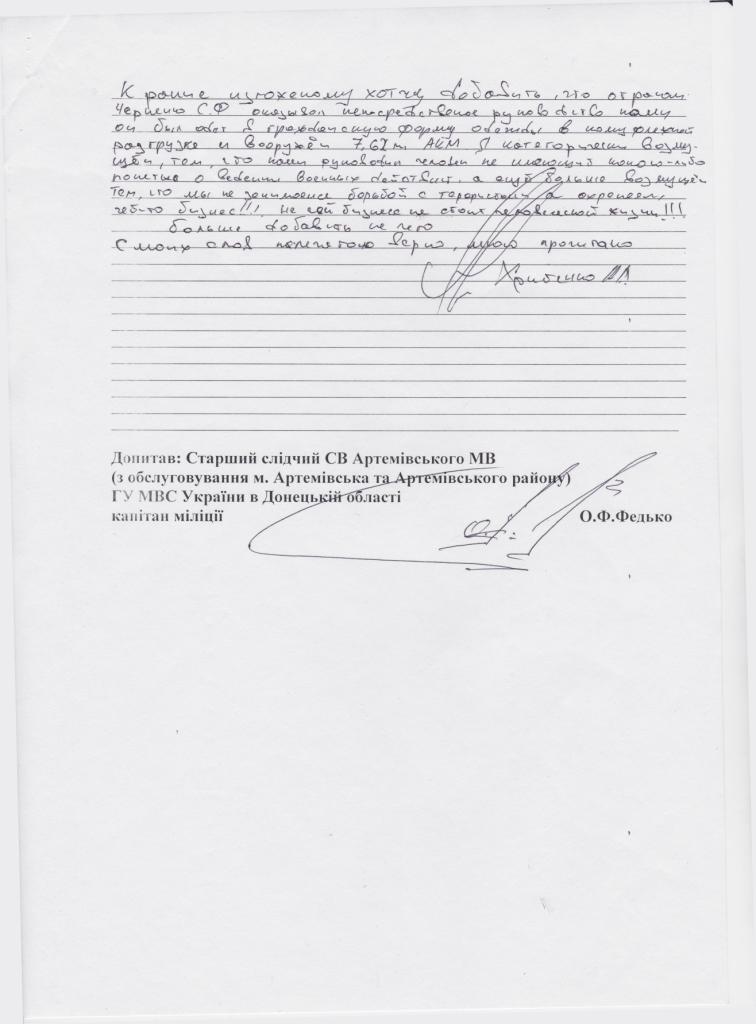 К ранее изложеному хотчу добавить, что отрядом
Черненко С.Ф оказывал непосредственое руководство нами
он был одет в гражданскую форму одежды, в
разгрузке и вооружён 7,62м АКМ Я категорически возму-
щён, тем, что нами руководил человек не имеющий какого-либо
понятия о ведении военных действий, а ещё больше возмущён
тем, что мы не занимаемся борьбой с терористами а охраняем,
чей-то бизнес!!! Не сей бизнес не стоит человеческой жизни!!!
больше добавить не чего
С моих слов напечатано верно, мною прочитано
Допитав: Старший слідчий СВ Артемівського МВ
(з обслуговування м. Артемівська та Артемівського району)
ГУ МВС України в Донецькій області
капітан міліції О.Ф.Федько